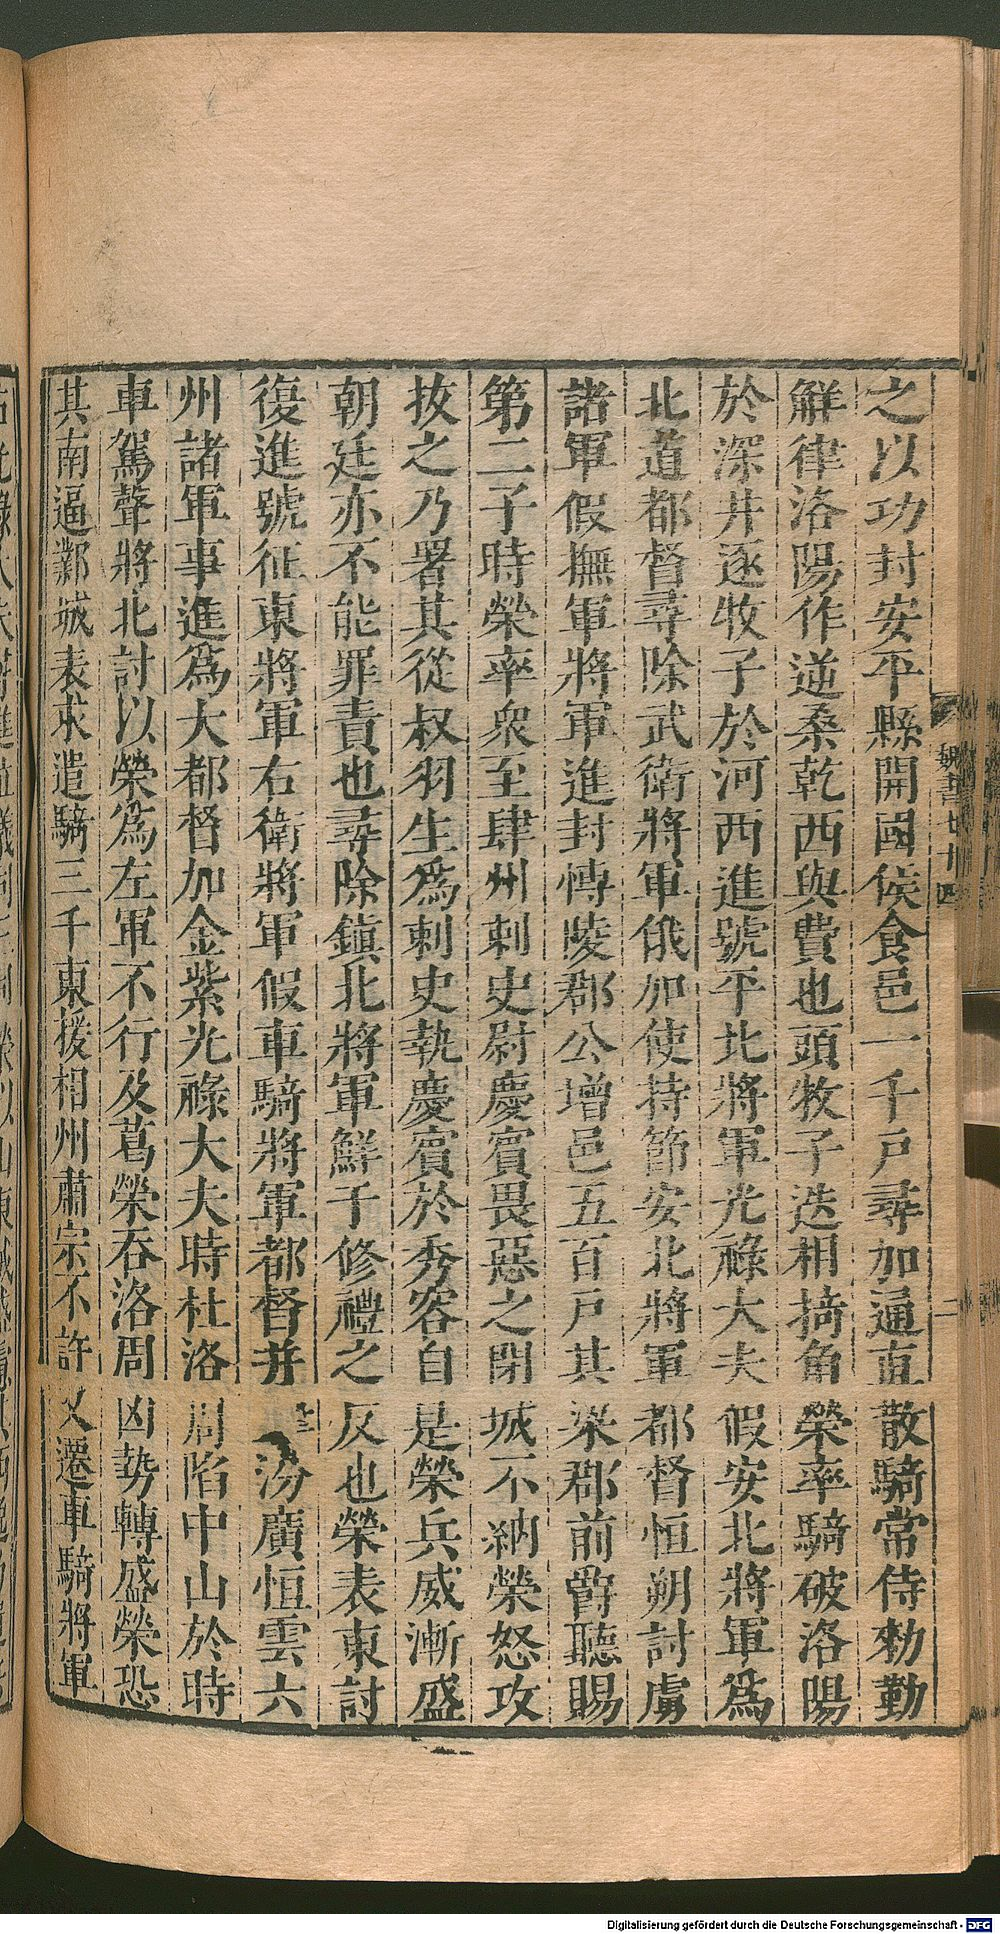 之以功封安平縣開國侯食邑一千戸尋加通直散騎常侍勑勤
觧律洛陽作逆桑乾西與費也頭牧子迭相掎角榮率騎破洛陽
於深井逐牧子於河西進號平北將軍光祿大夫假安北將軍爲
北道都督尋除武衛將軍俄加使持節安北將軍都督恒朔討虜
諸軍假撫軍將軍進封愽陵郡公增邑五百戸其梁郡前爵聽賜
第二子時榮率衆至肆州刺史尉慶賓畏惡之閉城不納榮怒攻
拔之乃署其從叔羽生爲刺史執慶賓於秀容自是榮兵威漸盛
朝廷亦不能罪責也尋除鎮北將軍鮮于修禮之反也榮表東討
復進號征東將軍右衛將軍假車騎將軍都督并汾廣恒雲六
州諸軍事進爲大都督加金紫光祿大夫時杜洛周陷中山於時
車駕聲將北討以榮爲左軍不行及葛榮吞洛周凶勢轉盛榮恐
其南逼鄴城表求遣騎三千東援相州肅宗不許又遷車騎將軍
魏書七十四
二
Digitalisierung gefördert durch die Deutsche Forschungsgemeinschaft - DFG